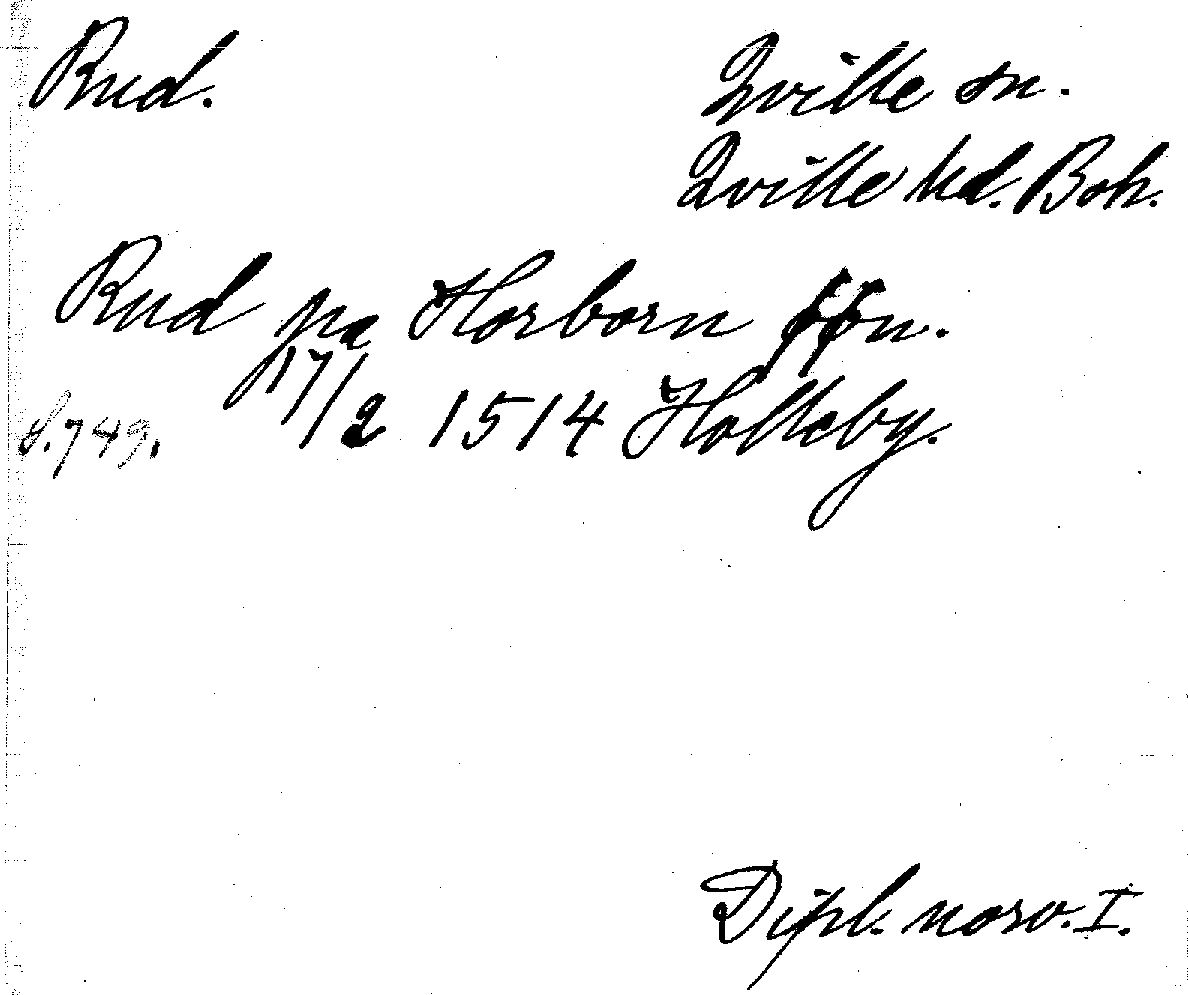 Rud.
Qville sn.
Qville hd. Boh.
Rud pa Horborn
17/2 1514 Holteby.
S. 749.
Dipl. norv. I.